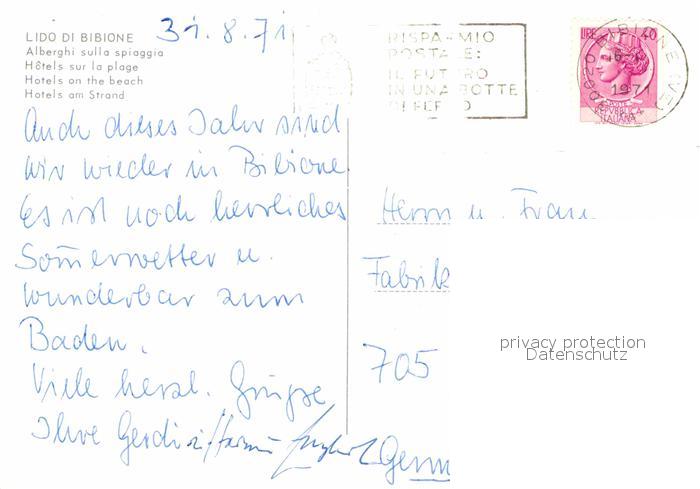 LIDO DI BIBIONE
Alberghi sulla spiaggia
Hôtels sur la plage
Hotels on the beach
Hotels am Strand
31.8.71
RISPARMIO
POSTALE:
IL FUTURO
IN UNA BOTTE
DI FERRO
LIRE 40
BIBIONE (VE)
1971
REPUBBLICA
ITALIANA
Auch dieses Jahr sind
wir wieder in Bibione.
Es ist noch herrliches
Som̄erwetter u.
wunderbar zum
Baden.
Viele herzl. Grüße
Ihre
Herrn u. Frau
Fabrik
705
Germ
privacy protection
Datenschutz